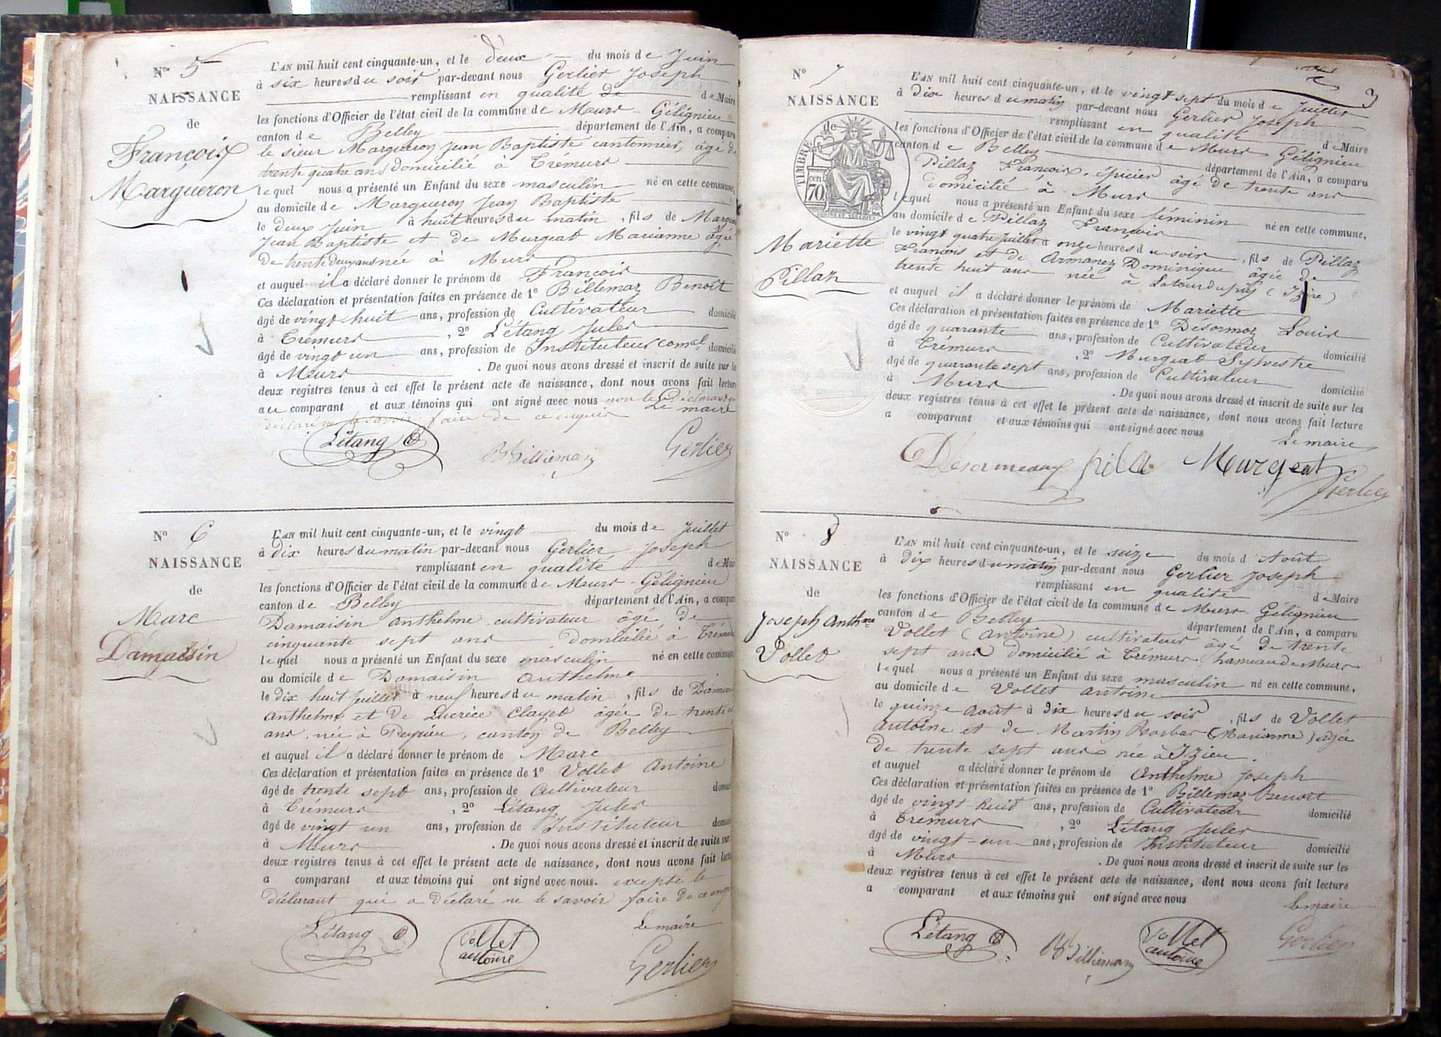 N° 5
NAISSANCE
de
François
Margueron
L'AN mil huit cent cinquante-un, et le deux du mois de Juin
à six heures du soir par-devant nous Gerlier Joseph
remplissant en qualité de Maire
les fonctions d'Officier de l'état civil de la commune de Murs - Gélignieu
canton de Belley département de l'Ain, a comparu
le sieur Margueron Jean Baptiste cantonnier, âgé de
trente quatre ans domicilié à Crémurs
lequel nous a présenté un Enfant du sexe masculin né en cette commune,
au domicile de Margueron Jean Baptiste
le deux Juin à huit heures du matin, fils de Margueron
Jean Baptiste et de Murgeat Marianne âgée
de trente deux ans née à Murs
et auquel il a déclaré donner le prénom de François
Ces déclaration et présentation faites en présence de 1° Billemaz Benoît
âgé de vingt huit ans, profession de Cultivateur domicilié
à Crémurs , 2° Létang Jules
âgé de vingt un ans, profession de Instituteur com.al domicilié
à Murs . De quoi nous avons dressé et inscrit de suite sur les
deux registres tenus à cet effet le présent acte de naissance, dont nous avons fait lecture
au comparant et aux témoins qui ont signé avec nous non le déclarant
Le maire
Létang
B Billiemaz
Gerlier
N° 6
NAISSANCE
de
Marc
Damaisin
L'AN mil huit cent cinquante-un, et le vingt du mois de Juillet
à dix heures du matin par-devant nous Gerlier Joseph
remplissant en qualité de Maire
les fonctions d'Officier de l'état civil de la commune de Murs - Gélignieu
canton de Belley département de l'Ain, a comparu
Damaisin anthelme cultivateur âgé de
cinquante sept ans domicilié à Crémurs
lequel nous a présenté un Enfant du sexe masculin né en cette commune
au domicile de Damaisin Anthelme
le dix huit Juillet à neuf heures du matin , fils de Damaisin
Anthelme et de Lucrèce Clayet âgée de trente
ans née à Peyrieu, canton de Belley
et auquel il a déclaré donner le prénom de Marc
Ces déclaration et présentation faites en présence de 1° Vollet Antoine
âgé de trente sept ans, profession de Cultivateur domicilié
à Crémurs , 2° Létang Jules
âgé de vingt un ans, profession de Instituteur domicilié
à Murs . De quoi nous avons dressé et inscrit de suite sur
deux registres tenus à cet effet le présent acte de naissance, dont nous avons fait lecture
a comparant et aux témoins qui ont signé avec nous. excepté le
déclarant qui a déclaré ne le savoir faire de ce enquis
Le maire
Létang
Vollet
antoine
Gerlier
3
N° 7
NAISSANCE
de
TIMBRE
70
Mariette
Pillaz
L'AN mil huit cent cinquante-un, et le vingt sept du mois de Juillet
à dix heures du matin par-devant nous Gerlier Joseph
remplissant en qualité de Maire
les fonctions d'Officier de l'état civil de la commune de Murs Gélignieu
canton de Belley département de l'Ain, a comparu
Pillaz François, épicier âgé de trente ans
domicilié à Murs
lequel nous a présenté un Enfant du sexe féminin né en cette commune,
au domicile de Pillaz François
le vingt quatre juillet à onze heures du soir , fils de Pillaz
François et de Armanez Dominique âgée de
trente huit ans née à Latourdupin (Izère)
et auquel il a déclaré donner le prénom de Mariette
Ces déclaration et présentation faites en présence de 1° Désormoz Louis
âgé de quarante ans, profession de Cultivateur
à Crémurs , 2° Murgeat Sylvestre domicilié
âgé de quarante sept ans, profession de Cultivateur
à Murs . domicilié
De quoi nous avons dressé et inscrit de suite sur les
deux registres tenus à cet effet le présent acte de naissance, dont nous avons fait lecture
a comparant et aux témoins qui ont signé avec nous
Le maire
Désormeaux pila Murgeat
Gerlier
N° 8
NAISSANCE
de
Joseph Anthme
Vollet
L'AN mil huit cent cinquante-un, et le seize du mois d Août
à dix heures du matin par-devant nous Gerlier Joseph
remplissant en qualité de Maire
les fonctions d'Officier de l'état civil de la commune de Murs Gélignieu
canton de Belley département de l'Ain, a comparu
Vollet (Antoine) cultivateur âgé de trente
sept ans domicilié à Crémurs hameau de Murs
lequel nous a présenté un Enfant du sexe masculin né en cette commune,
au domicile de Vollet Antoine
le quinze Août à dix heures du soir , fils de Vollet
Antoine et de Martin Barbas (Marianne) âgée
de trente sept ans née à Izieu.
et auquel a déclaré donner le prénom de Anthelme Joseph
Ces déclaration et présentation faites en présence de 1° Billemaz Benoît
âgé de vingt huit ans, profession de Cultivateur domicilié
à Crémurs , 2° Létang Jules
âgé de vingt-un ans, profession de Instituteur domicilié
à Murs . De quoi nous avons dressé et inscrit de suite sur les
deux registres tenus à cet effet le présent acte de naissance, dont nous avons fait lecture
a comparant et aux témoins qui ont signé avec nous
Le maire
Létang
B Billiemaz
Vollet
antoine
Gerlier